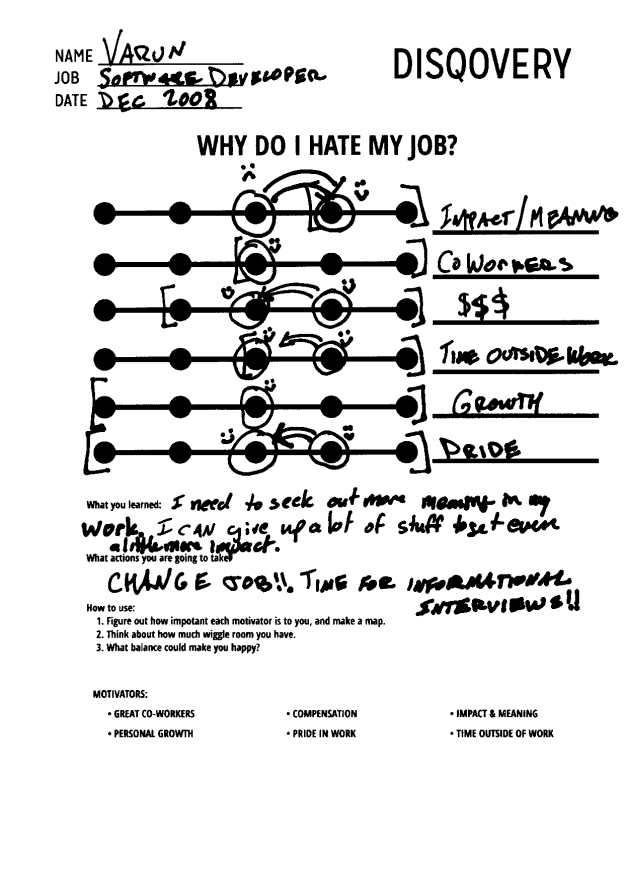 NAME VARUN
DISQOVERY
JOB SOFTWARE DEVELOPER
DATE DEC 2008
WHY DO I HATE MY JOB?
IMPACT/MEANING
COWORKERS
$$$
TIME OUTSIDE WORK
GROWTH
PRIDE
What you learned: I need to seek out more meaning in my
work. I CAN give up a lot of stuff to get even
a little more impact.
What actions you are going to take?
CHANGE JOB!!. TIME FOR INFORMATIONAL
INTERVIEWS!!
How to use:
1. Figure out how impotant each motivator is to you, and make a map.
2. Think about how much wiggle room you have.
3. What balance could make you happy?
MOTIVATORS:
• GREAT CO-WORKERS • COMPENSATION • IMPACT & MEANING
• PERSONAL GROWTH • PRIDE IN WORK • TIME OUTSIDE OF WORK